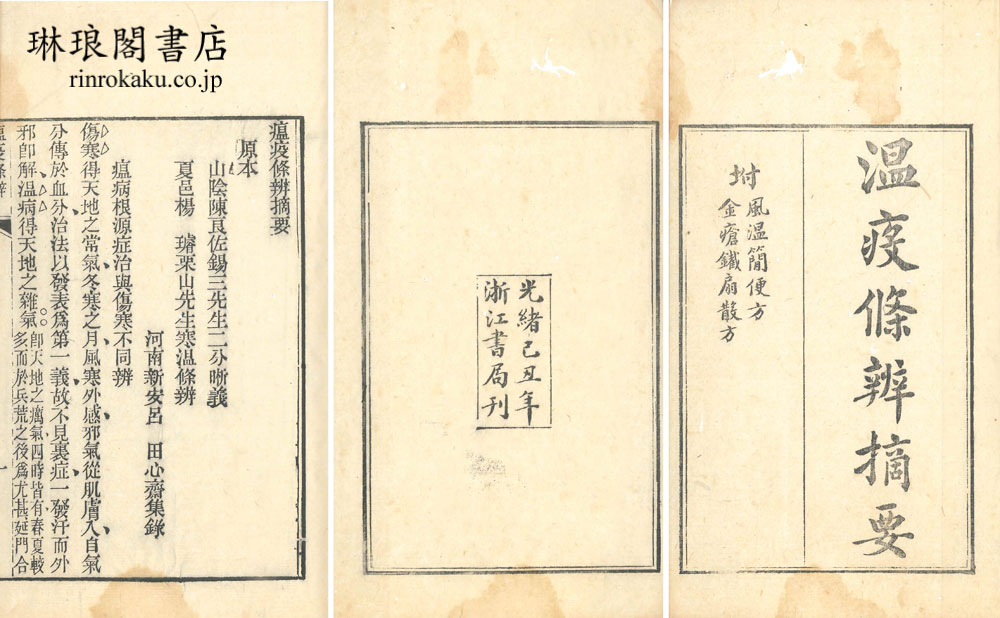 琳琅閣書店
rinrokaku.co.jp
温疫條辨摘要
坿
風温簡便方
金瘡鐵扇散方
光緒己丑年
浙江書局刊
瘟疫條辨摘要
原本
山陰陳良佐錫三先生二分晰義
夏邑楊 璿栗山先生寒温條辨
河南新安呂 田心齋集錄
瘟病根源症治與傷寒不同辨
傷寒得天地之常氣冬寒之月風寒外感邪氣從肌膚入自氣
分傳於血分治法以發表爲第一義故不見裏症一發汗而外
邪卽解温病得天地之雜氣卽天地之癘氣四時皆有春夏較
多而於兵荒之後爲尤甚延門合